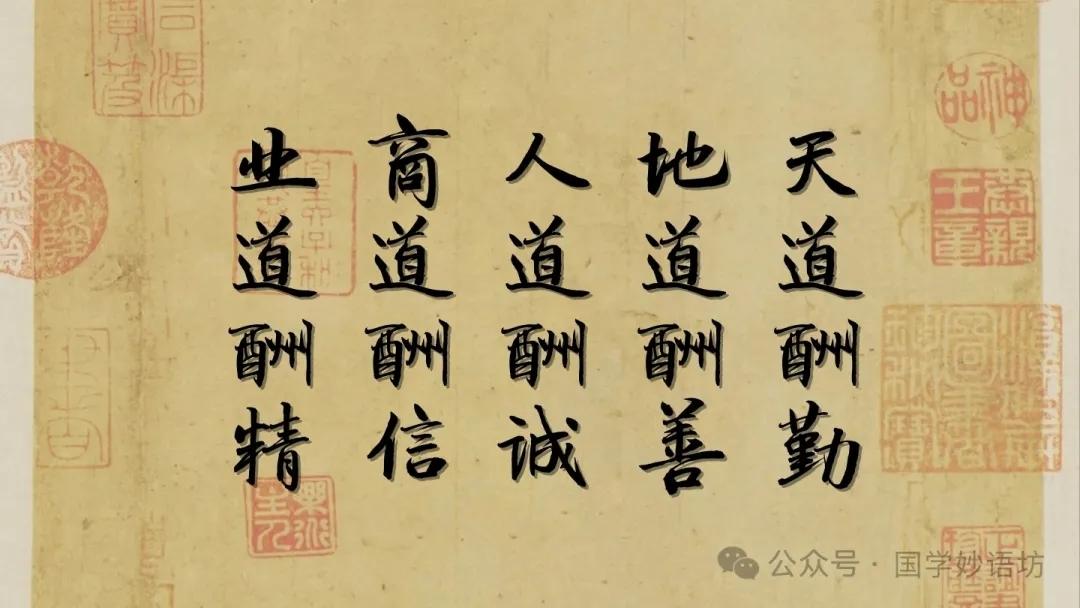 天道酬勤
地道酬善
人道酬诚
商道酬信
业道酬精
神品
公众号·国学妙语坊